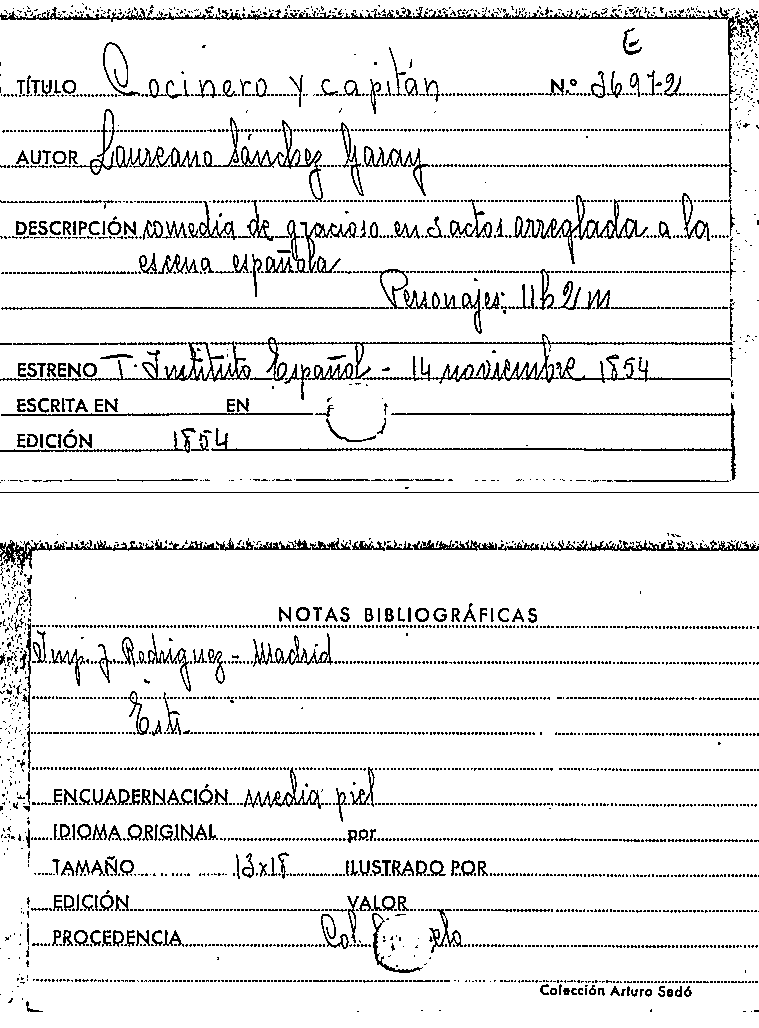 E
TÍTULO Cocinero y capitán N.º 3697-2
AUTOR Laureano Sánchez Garay
DESCRIPCIÓN comedia de gracioso en 3 actos arreglada a la
escena española
Personajes: 11h 2m
ESTRENO T. Instituto Español - 14 noviembre 1854
ESCRITA EN EN
EDICIÓN 1854
NOTAS BIBLIOGRÁFICAS
Imp. J. Rodriguez - Madrid
ENCUADERNACIÓN media piel
IDIOMA ORIGINAL por
TAMAÑO 13x18 ILUSTRADO POR
EDICIÓN VALOR
PROCEDENCIA Col.
Colección Arturo Sedó